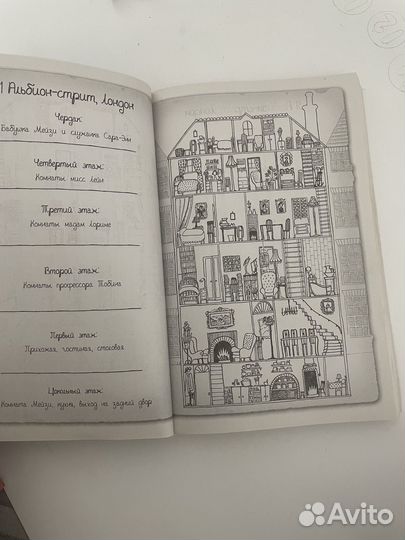 1 Альбион-стрит, Лондон
Чердак:
Бабушка Мейзи и служанка Сара-Энн
Четвертый этаж:
Комнаты мисс Лейлы
Третий этаж:
Комнаты мадам Лорине
Второй этаж:
Комнаты профессора Тобина
Первый этаж:
Прихожая, гостиная, столовая
Цокольный этаж:
Комната Мейзи, кухня, выход на задний двор
Avito